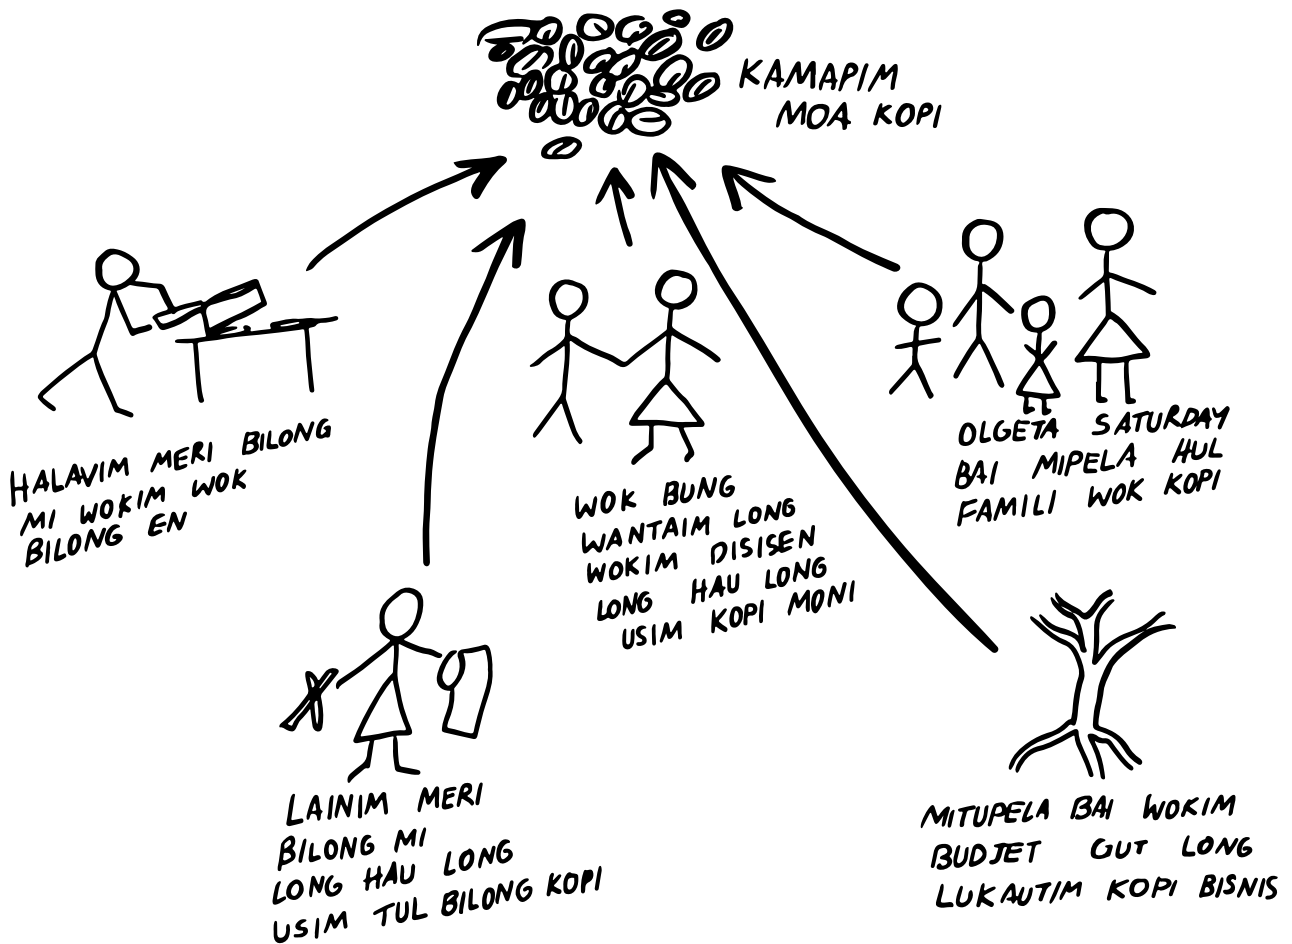 KAMAPIM
MOA KOPI
HALAVIM MERI BILONG
MI WOKIM WOK
BILONG EN
WOK BUNG
WANTAIM LONG
WOKIM DISISEN
LONG HAU LONG
USIM KOPI MONI
OLGETA SATURDAY
BAI MIPELA HUL
FAMILI WOK KOPI
LAINIM MERI
BILONG MI
LONG HAU LONG
USIM TUL BILONG KOPI
MITUPELA BAI WOKIM
BUDJET GUT LONG
LUKAUTIM KOPI BISNIS